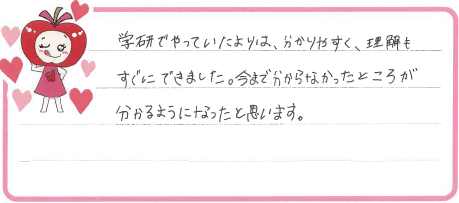 学研でやっていたよりは、分かりやすく、理解も
すぐにできました。今まで分からなかったところが
分かるようになったと思います。